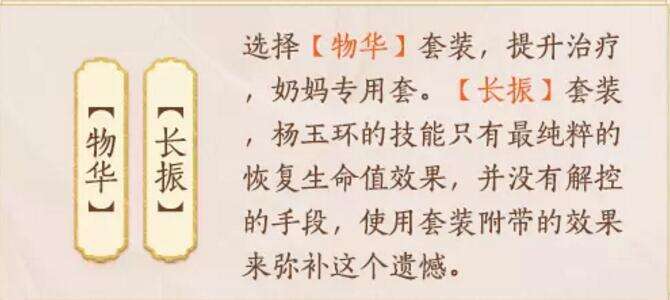 【物华】
【长振】
选择【物华】套装，提升治疗
，奶妈专用套。【长振】套装
，杨玉环的技能只有最纯粹的
恢复生命值效果，并没有解控
的手段，使用套装附带的效果
来弥补这个遗憾。